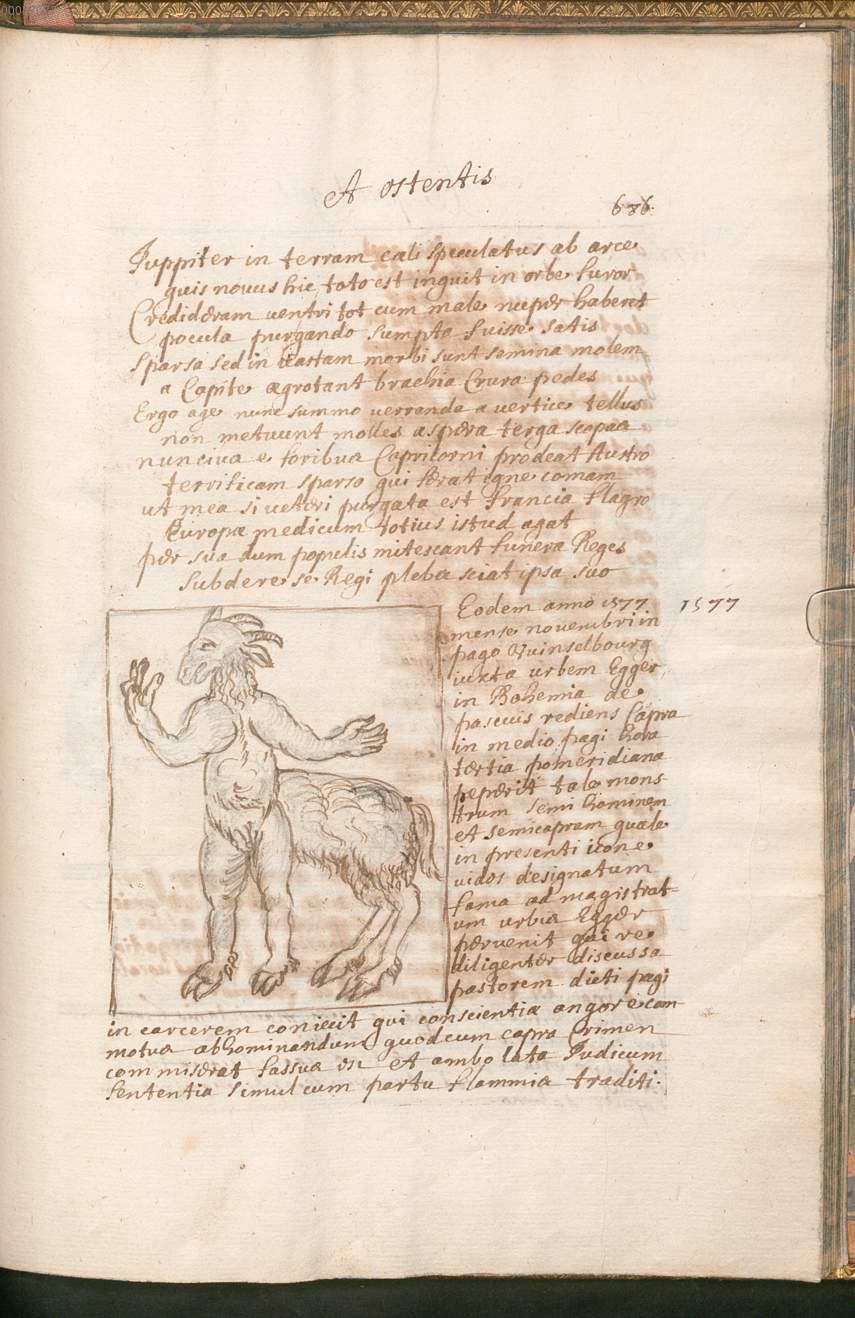 Et ostentis
686.
Juppiter in terram cæli speculatus ab arce
quis novus hic toto est inquit in orbe furor
Credideram ventri tot cum male nuper haberet
pocula purgando sumpta fuisse satis
Sparsa sed in vastam morbi sunt semina molem
a Capite ægrotant brachia Crura pedes
Ergo age nunc summo verrenda a vertice tellus
non metuunt molles aspera terga scopas
nuncius e foribus Capricorni prodeat Austro
terrificam sparso qui ferat igne comam
ut mea si veteri purgata est Francia flagro
Europæ medicum totius istud agat
per sua dum populis mitescant funera Reges
Subdere se Regi plebs sciat ipsa suo
Eodem anno 1577.
1577
mense novembri in
pago Quinselbourg
iuxta urbem Egger
in Bohemia de
pascuis rediens Capra
in medio pagi hora
tertia pomeridiana
peperit tale mons
trum semi hominem
et semicapram quale
in presenti icone
vides designatum
fama ad magistrat=
um urbis Egger
pervenit qui re
diligenter discussa
pastorem dicti pagi
in carcerem coniicit qui conscientiæ angore com
motus abhominandum quod cum capra Crimen
commiserat fassus Et ambo lata Judicum
Sententia simul cum partu flammis traditi.